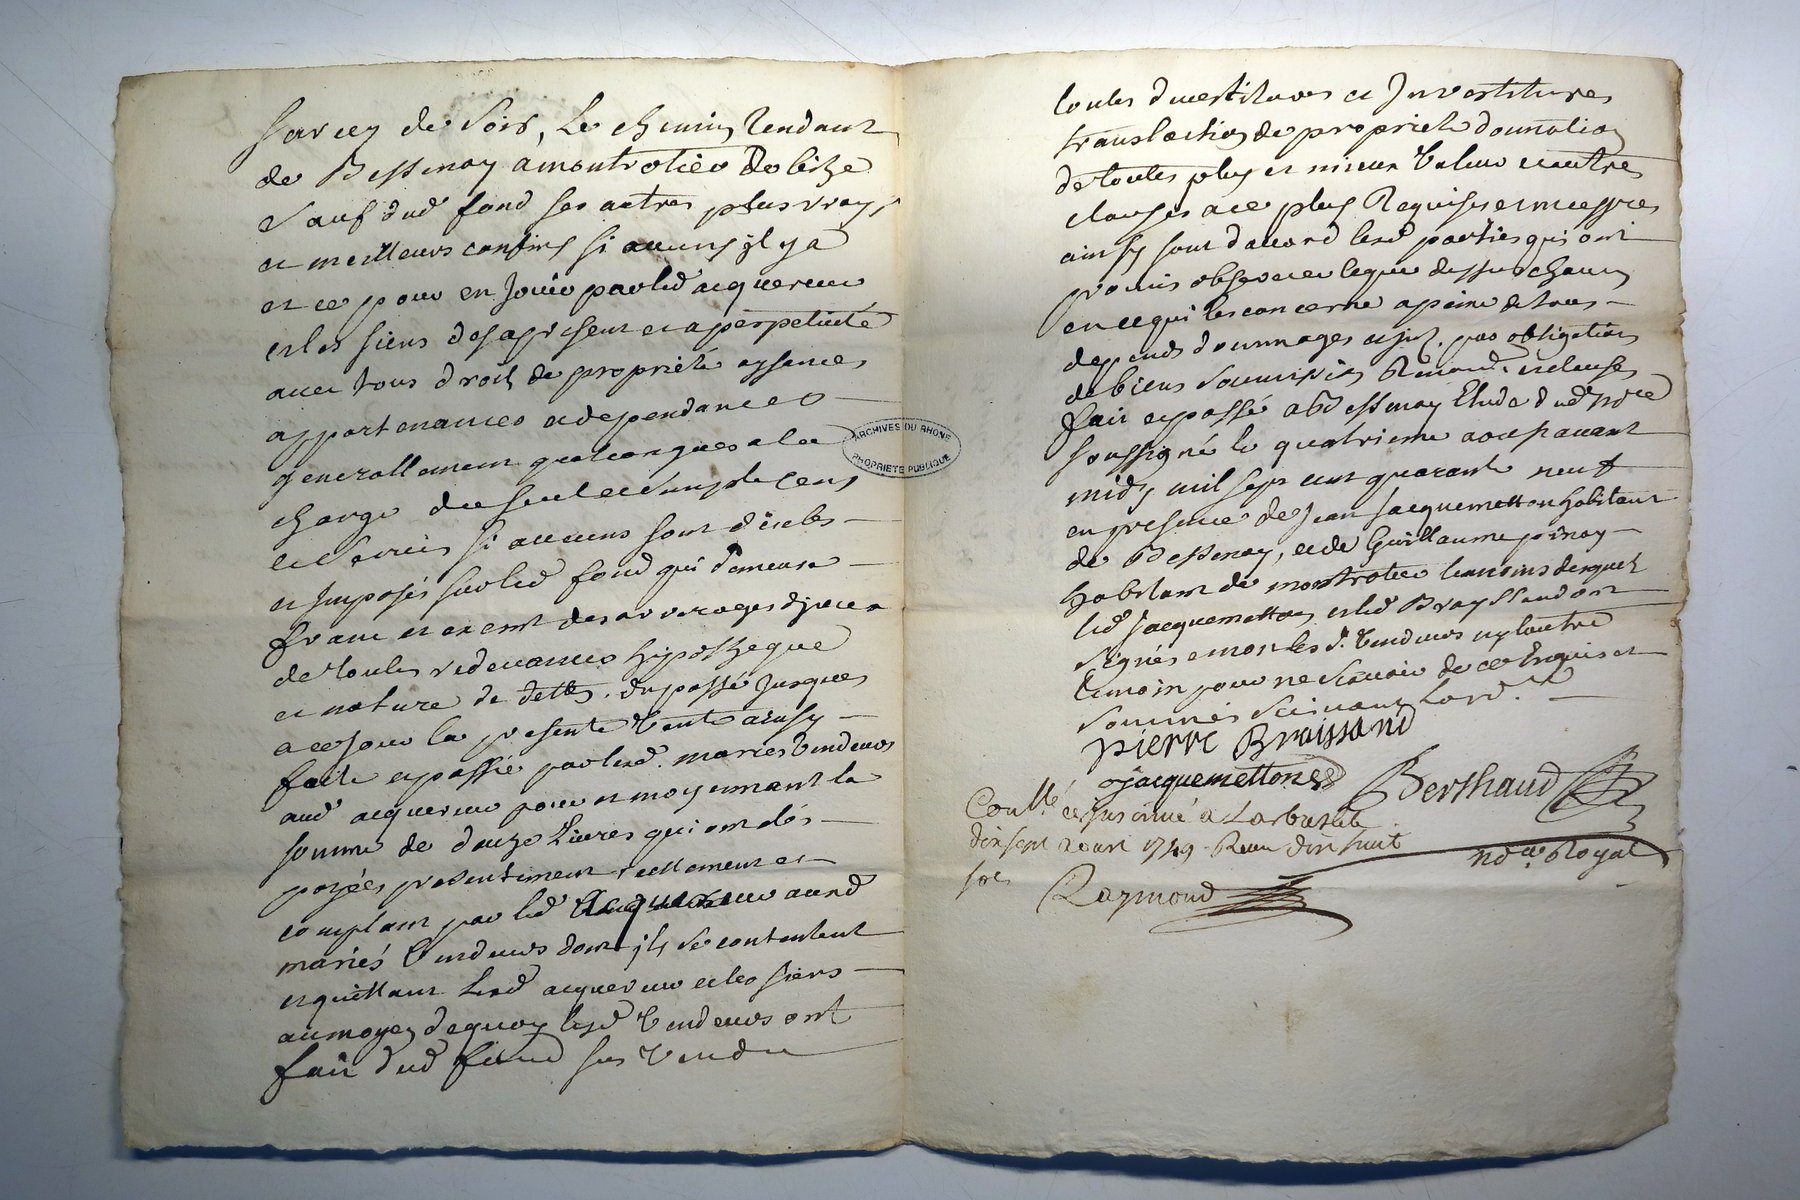 Sarcey de soir, Le chemin Tendant
de Bessenay a montrotier de bize
Sauf dud fond ses autres plus vrays
et meilleurs confins si aucuns il y a
et ce pour en Jouir par led acquereur
et les siens des apresent et a perpetuité
avec tous droits de proprieté aysances
appartenances et dependances
generallement quelconques a la
charge du seul et simple cens
et servis si aucuns sont deubs
et Imposés sur led fond qui demeure
franc et exempt des arrerages d'yceux
de toutes redevances hypotheque
et nature de dettes du passé Jusques
a ce Jour la presente Vente ainsy
faite et passée par lesd. mariés Vendeurs
aud acquereur pour et moyennant la
somme de douze Livres qui ont été
payées presentement reellement et
comptant par led Acquereur auxd
mariés Vendeurs dont ils se contentent
et quittent Led acquereur et les siens
au moyen de quoy lesd Vendeurs ont
fait dud fond sus Vendu
ARCHIVES DU RHONE
PROPRIETE PUBLIQUE
toutes devestitures et Investitures
translation de proprieté donnation
de toutes plus et mieux Valeur et autres
clauses a ce plus Requises et necessres
ainsy sont d'accord lesd parties qui ont
promis observer le que dessus chacun
en ce qui les concerne a peine de tous
depends dommages par obligation
de biens Soumission Renond. et clauses
fait et passé a Bessenay Etude dud Nore
soussigné le quatrieme aoust avant
midy mil sept cent quarante neuf
en presence de Jean Jacquemetton habitant
de Bessenay, et de Guillaume pinay
habitant de montrotier temoins desquels
led Jacquemetton et led Brayssand ont
signés et non les d. Vendeurs ny l'autre
temoin pour ne scavoir de ce Enquis et
sommés Suivant Lord.
pierre Braissand
Jacquemetton
Berthaud
Conllé et Insinué a Larbresle
dix sept aout 1749 Recu dix huit
sols
Raymond
nore Royal